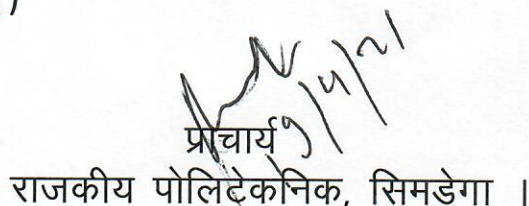 9/4/21
प्राचार्य
राजकीय पोलिटेकनिक, सिमडेगा ।